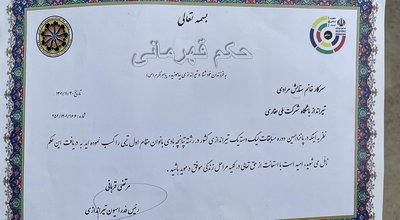 بسمه تعالی
حکم قهرمانی
به فرزندان خود شنا و تیراندازی بیاموزید. پیامبر اکرم (ص)
سرکار خانم ستایش مرادی
تیرانداز باشگاه شرکت ملی حفاری
نظر به اینکه در پانزدهمین دوره مسابقات لیگ دسته یک تیراندازی کشور در رشته تپانچه بادی بانوان مقام اول تیمی را کسب نموده اید به دریافت این حکم
نائل می شوید. امید است با استعانت از حق تعالی در کلیه مراحل زندگی موفق و موید باشید.
مرتضی قربانی
رئیس فدراسیون تیراندازی